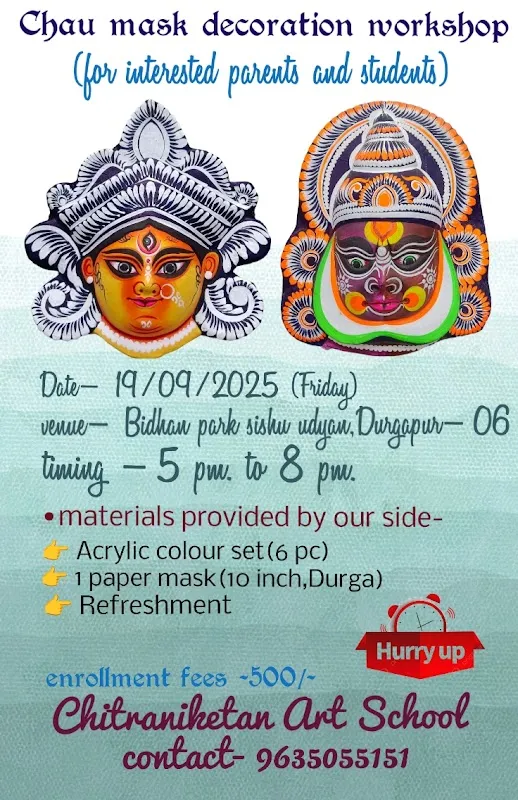 Chau mask decoration workshop
(for interested parents and students)
Date— 19/09/2025 (Friday)
venue— Bidhan park sishu udyan,Durgapur— 06
timing — 5 pm. to 8 pm.
•materials provided by our side-
👉 Acrylic colour set(6 pc)
👉 1 paper mask(10 inch,Durga)
👉 Refreshment
Hurry up
enrollment fees -500/-
Chitraniketan Art School
contact- 9635055151